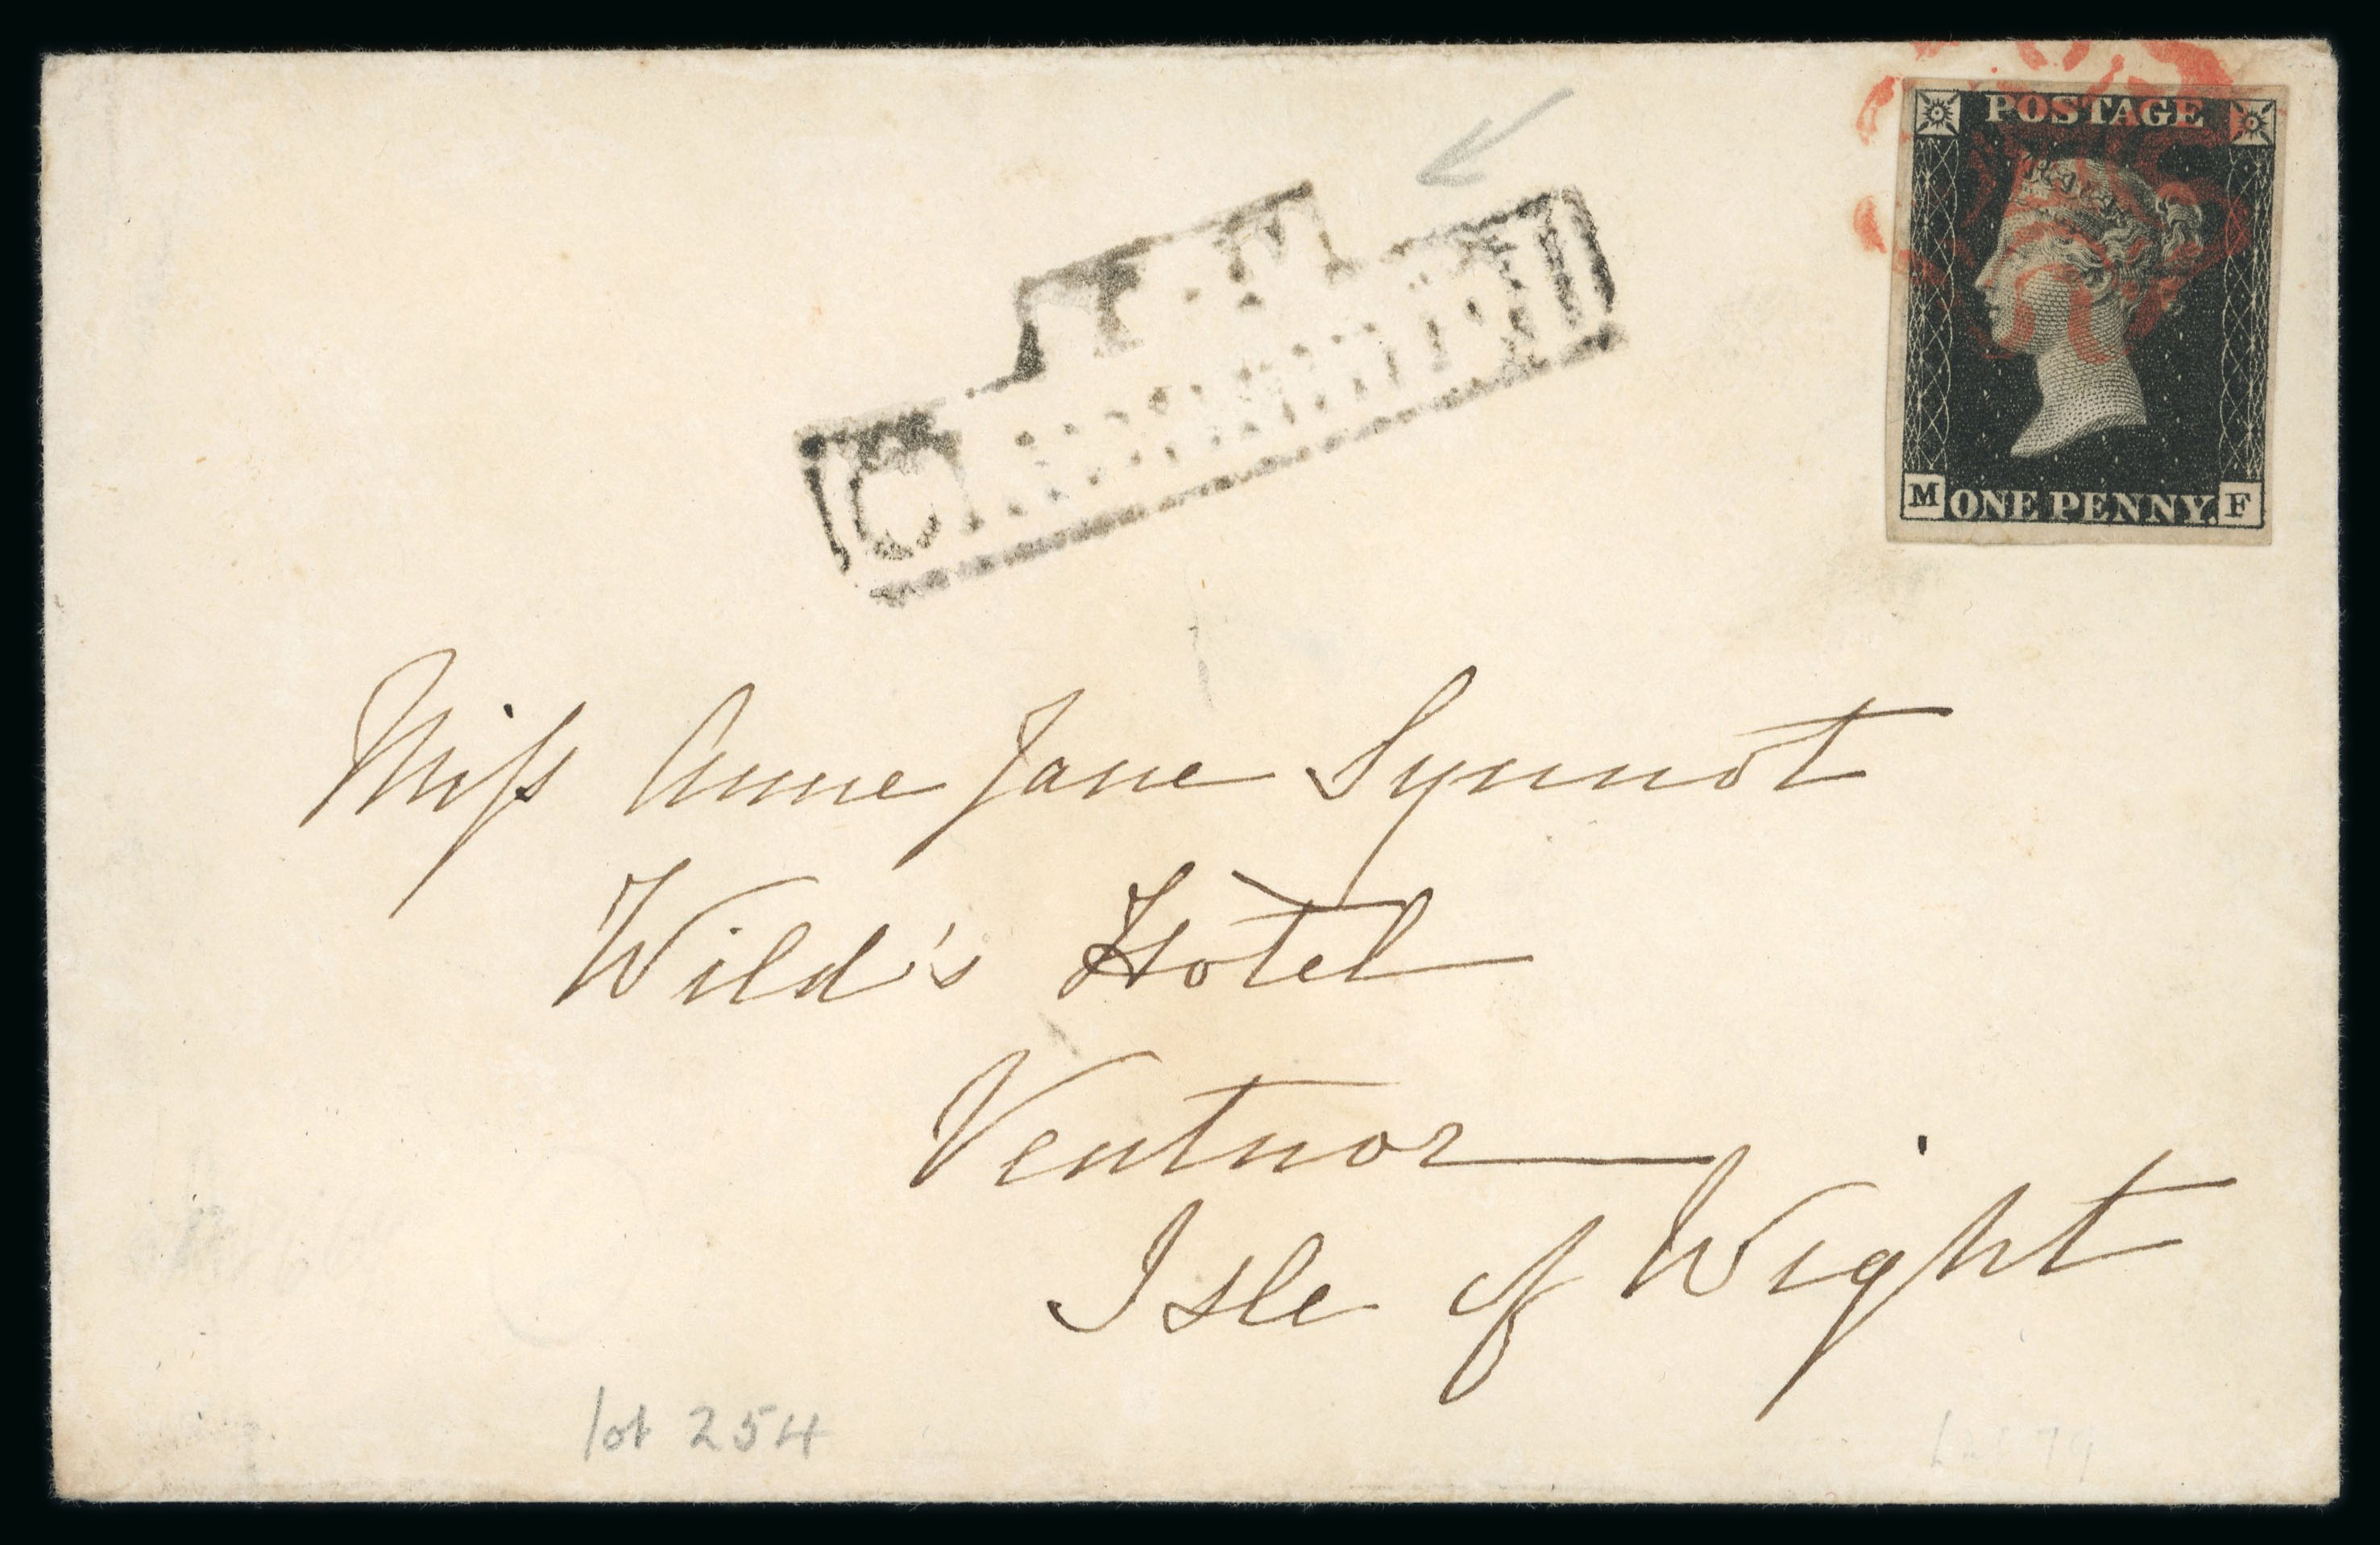 POSTAGE
M ONE PENNY. F
Miss Anne Jane Synnot
Wild's Hotel
Ventnor
Isle of Wight
lot 254